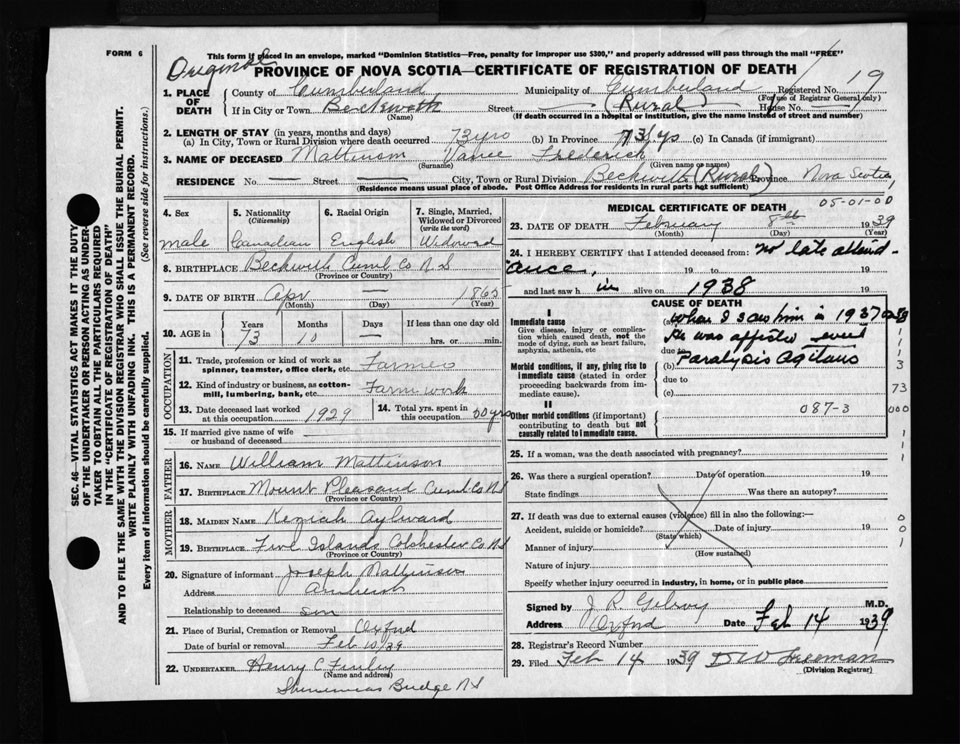 FORM 6
This form if placed in an envelope, marked "Dominion Statistics—Free, penalty for improper use $300," and properly addressed will pass through the mail "FREE"
Original
PROVINCE OF NOVA SCOTIA—CERTIFICATE OF REGISTRATION OF DEATH
19
1. PLACE OF DEATH County of Cumberland Municipality of Cumberland Registered No.
(For use of Registrar General only)
If in City or Town Beckwith Street — (Rural) House No.
(Name) (If death occurred in a hospital or institution, give the name instead of street and number)
2. LENGTH OF STAY (in years, months and days)
(a) In City, Town or Rural Division where death occurred 73 yrs (b) In Province 73 yrs (c) In Canada (if immigrant)
3. NAME OF DECEASED Mattinson Vance Frederick
(Surname) (Given name or names)
RESIDENCE No. — Street — City, Town or Rural Division Beckwith (Rural) Province Nova Scotia
(Residence means usual place of abode. Post Office Address for residents in rural parts not sufficient)
4. Sex male
5. Nationality (Citizenship) Canadian
6. Racial Origin English
7. Single, Married, Widowed or Divorced (write the word) Widowed
8. BIRTHPLACE Beckwith Cumb. Co N S
(Province or Country)
9. DATE OF BIRTH Apr — 1865
(Month) (Day) (Year)
10. AGE in Years 73 Months 10 Days — If less than one day hrs. or min.
OCCUPATION
11. Trade, profession or kind of work as spinner, teamster, office clerk, etc. Farmer
12. Kind of industry or business, as cotton-mill, lumbering, bank, etc. Farm work
13. Date deceased last worked at this occupation 1929
14. Total yrs. spent in this occupation 50 yrs
15. If married give name of wife or husband of deceased
FATHER
16. NAME William Mattinson
17. BIRTHPLACE Mount Pleasand Cumb Co NS
(Province or Country)
MOTHER
18. MAIDEN NAME Keziah Aylward
19. BIRTHPLACE Five Islands Colchester Co NS
(Province or Country)
20. Signature of informant Joseph Mattinson
Address Amherst
Relationship to deceased son
21. Place of Burial, Cremation or Removal Oxford
Date of burial or removal Feb 10/39
22. UNDERTAKER Henry C Finley
(Name and address)
Shinimicas Bridge N S
MEDICAL CERTIFICATE OF DEATH
05-01-00
23. DATE OF DEATH February 8th 1939
(Month) (Day) (Year)
24. I HEREBY CERTIFY that I attended deceased from: no late attend-
ance, 19 to 19
and last saw h im alive on 1938 19
CAUSE OF DEATH
I
Immediate cause
Give disease, injury or complication which caused death, not the mode of dying, such as heart failure, asphyxia, asthenia, etc
(a) When I saw him in 1937
He was afflicted with
due to
Paralysis Agitans
Morbid conditions, if any, giving rise to immediate cause (stated in order proceeding backwards from immediate cause).
(b)
due to
(c)
II
Other morbid conditions (if important) contributing to death but not causally related to immediate cause.
087-3
3
73
000
25. If a woman, was the death associated with pregnancy?
26. Was there a surgical operation? Date of operation 19
State findings Was there an autopsy?
27. If death was due to external causes (violence) fill in also the following:—
Accident, suicide or homicide? Date of injury 19
(State which)
Manner of injury
(How sustained)
Nature of injury
Specify whether injury occurred in industry, in home, or in public place
0
0
1
Signed by J. R. Gilroy M.D.
Address Oxford Date Feb 14 1939
28. Registrar's Record Number
29. Filed Feb 14 1939 D W Freeman
(Division Registrar)
SEC. 46—VITAL STATISTICS ACT MAKES IT THE DUTY
OF THE UNDERTAKER OR PERSON ACTING AS UNDER-
TAKER TO OBTAIN ALL THE PARTICULARS REQUIRED
IN THE "CERTIFICATE OF REGISTRATION OF DEATH"
AND TO FILE THE SAME WITH THE DIVISION REGISTRAR WHO SHALL ISSUE THE BURIAL PERMIT.
WRITE PLAINLY WITH UNFADING INK. THIS IS A PERMANENT RECORD.
Every item of information should be carefully supplied. (See reverse side for instructions.)